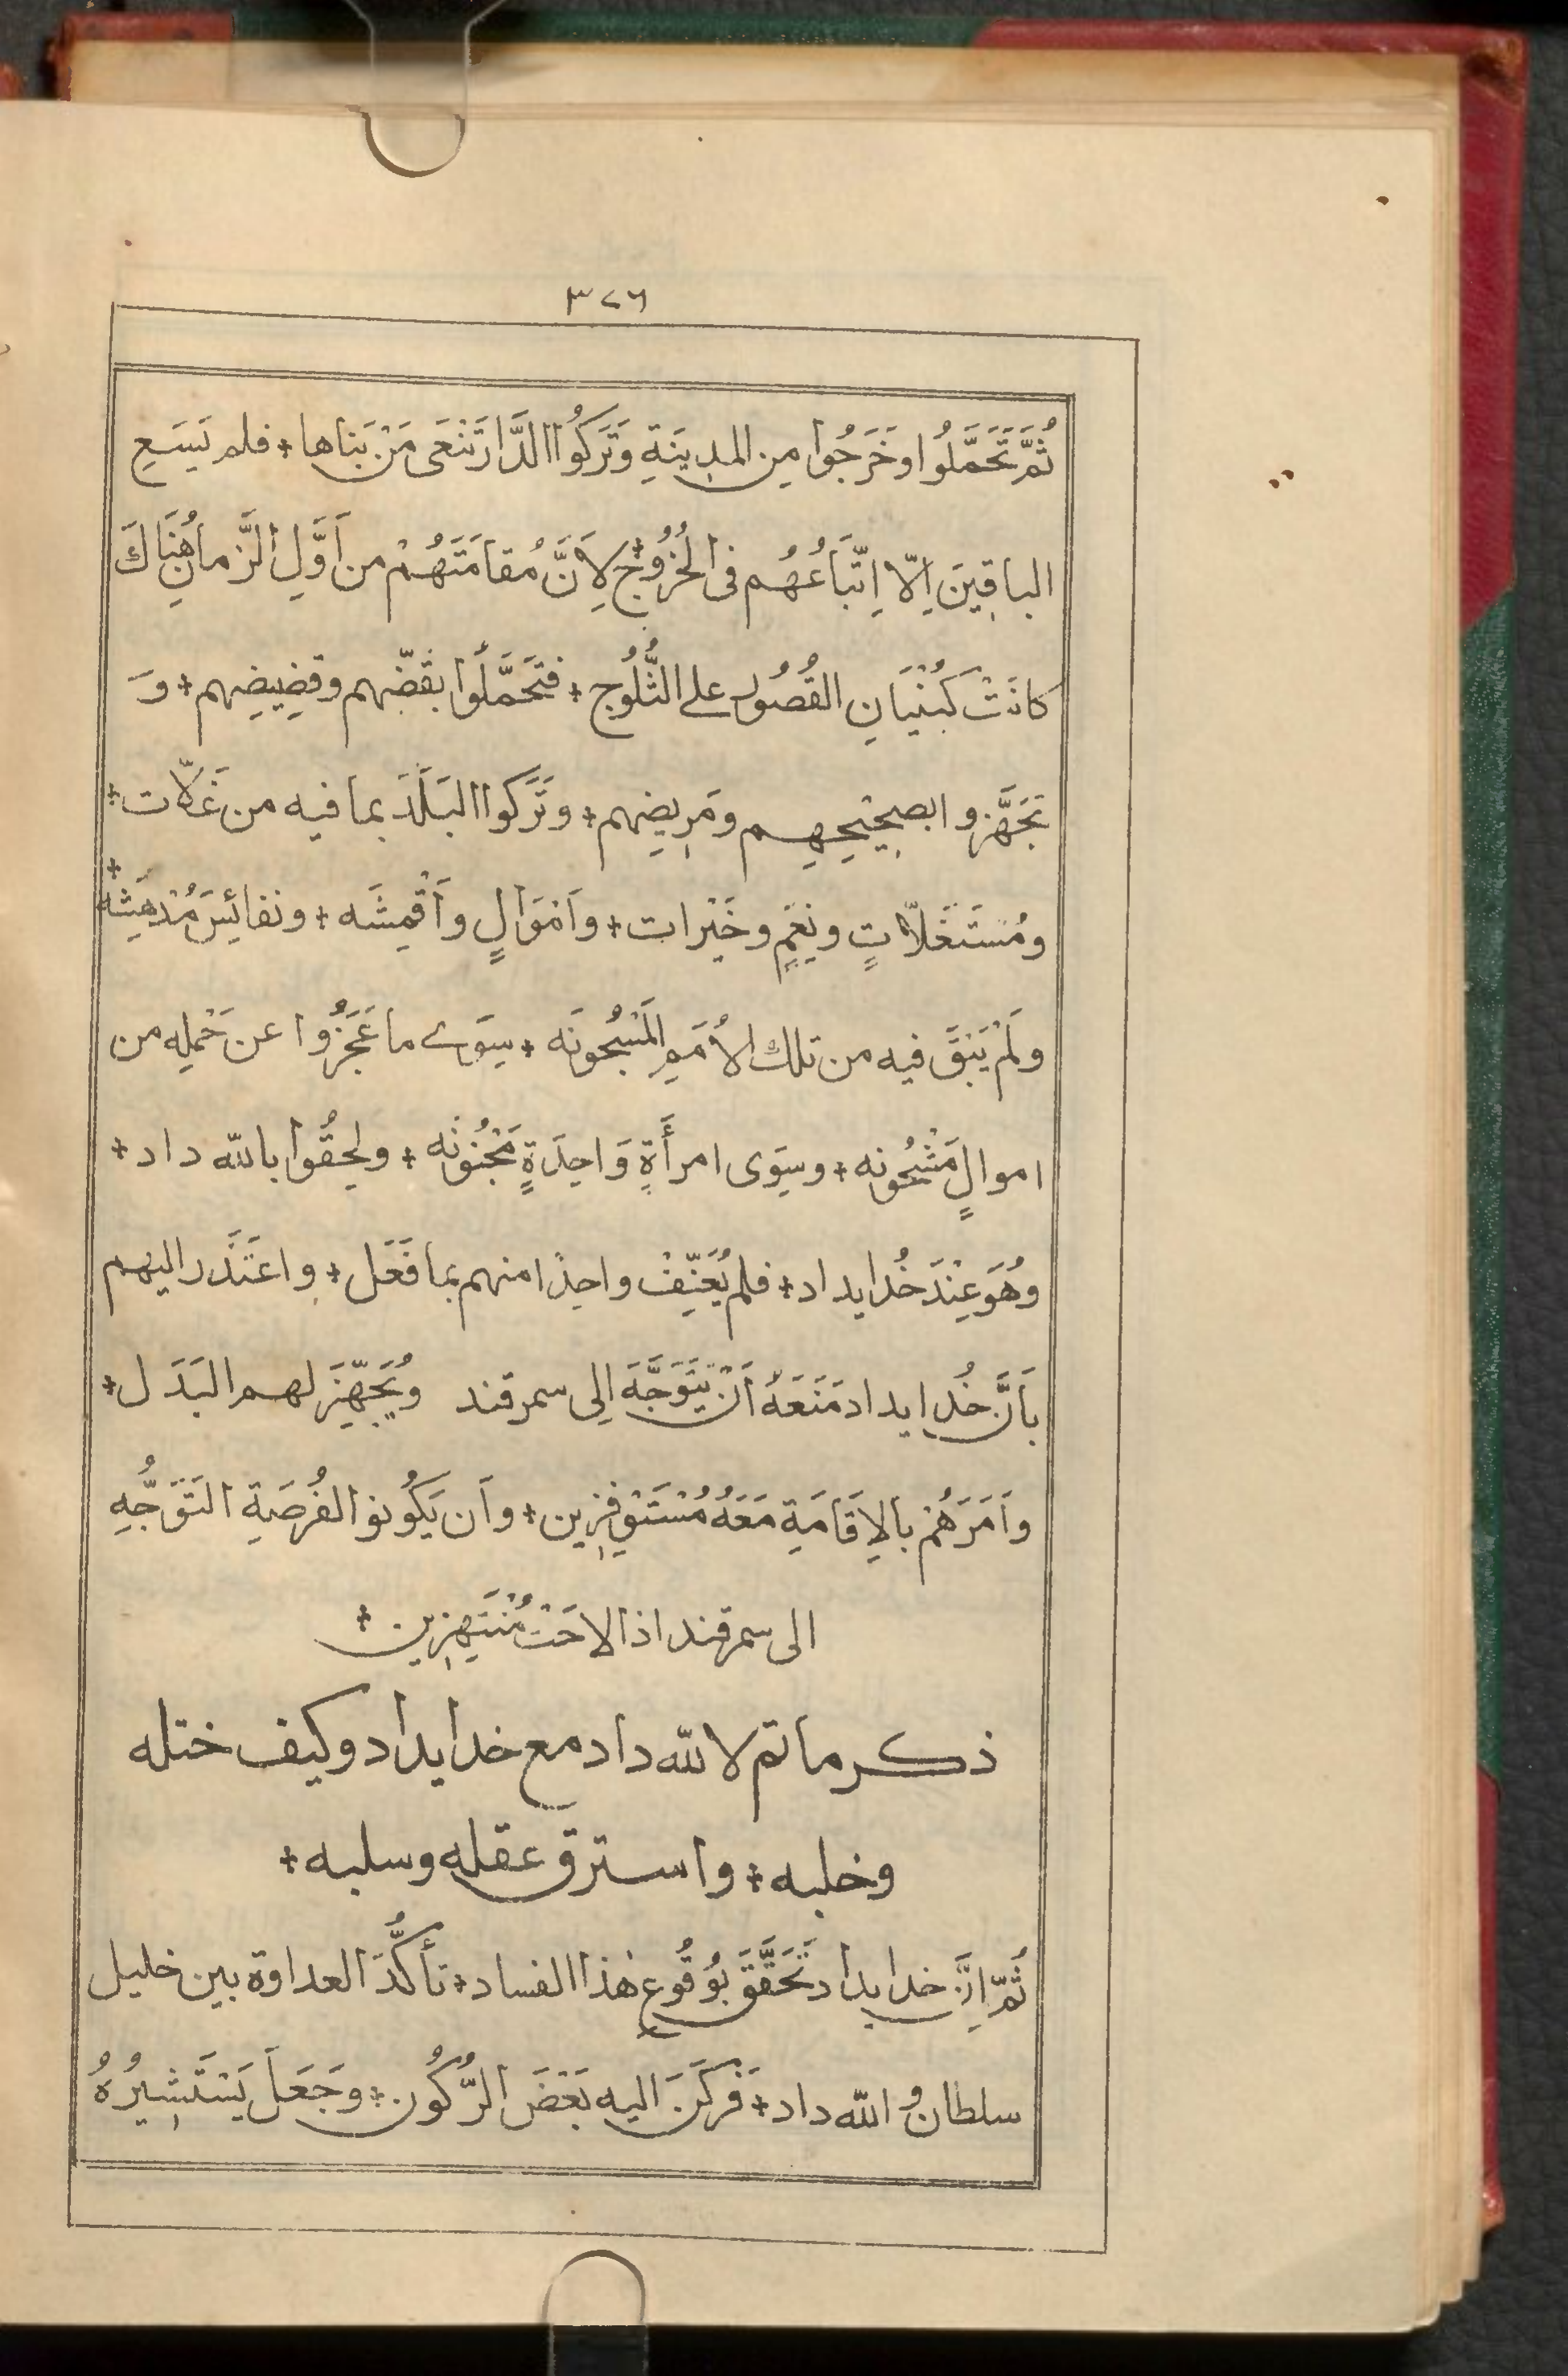 ٣٢٦
ثُمَّ تَحَمَّلُوا وخَرَجُوا مِن المدِينَةِ وَتَرَكُوا الدَّارَ تَنْعَى مَنْ بَناها + فلم يَسِعِ
الباقِينَ اِلّا اِتِّبَاعُهُم فى الخُرُوُج + لِاَنَّ مُقامَتَهُمْ من اَوَّلِ الزَّمانِ هُنَاكَ
كانَتْ كَبُنْيَانِ القُصُورِ على الثُّلُوج + فتَحَمَّلُوا بقَضِّهِم وقضِيضِهِم + وَ
تَجَهَّزوا بصحِيْحِهِم ومَرِيضِهم + وتَرَكوا البَلَدَ بما فيه من غَلّات +
ومُسْتَغَلّاتٍ ونِعَمٍ وخَيْرات + واَمْوَالٍ واَقْمِشَه + ونفائِسَ مُدْهِشَه +
ولَمْ يَبْقَ فيه من تلك الاُمَمِ المَسْجُونَه + سِوَى ما عَجَزُوا عن حَمْلِه من
اموالٍ مَشْحُونه + وسِوَى امرأَةٍ وَاحِدَةٍ مَجْنُونَه + ولحِقُوا بالله داد +
وهُوَ عِنْدَ خُدايداد + فلم يُعَنِّفْ واحِدًا منهم بما فَعَل + واعتَذَر اليهم
بأَنَّ خُدايداد مَنَعَهُ اَنْ يَتَوَجَّهَ اِلى سمرقند ويُجَهِّزَ لهم البَدَل +
واَمَرَهُمْ بالاِقَامَةِ مَعَهُ مُسْتَوْفِزِين + واَن يَكُونوا لفُرصَةِ التَوَجُّهِ
الى سمرقند اذا لاحَتْ مُنْتَهِزِين +
ذكر ما تم لالله داد مع خدايداد وكيف ختله
وخلبه + واسترق عقله وسلبه +
ثُمَّ اِنَّ خدايداد تَحَقَّقَ بوُقُوعِ هٰذا الفساد + تأكُّدَ العداوة بين خليل
سلطان و الله داد + فَرَكَنَ اليه بَعْضَ الرُّكُون + وجَعَلَ يَسْتَشِيرُهُ